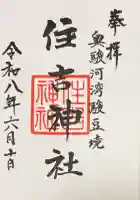 奉拝
奥駿河湾駿豆境
住吉神社
令和八年六月十日